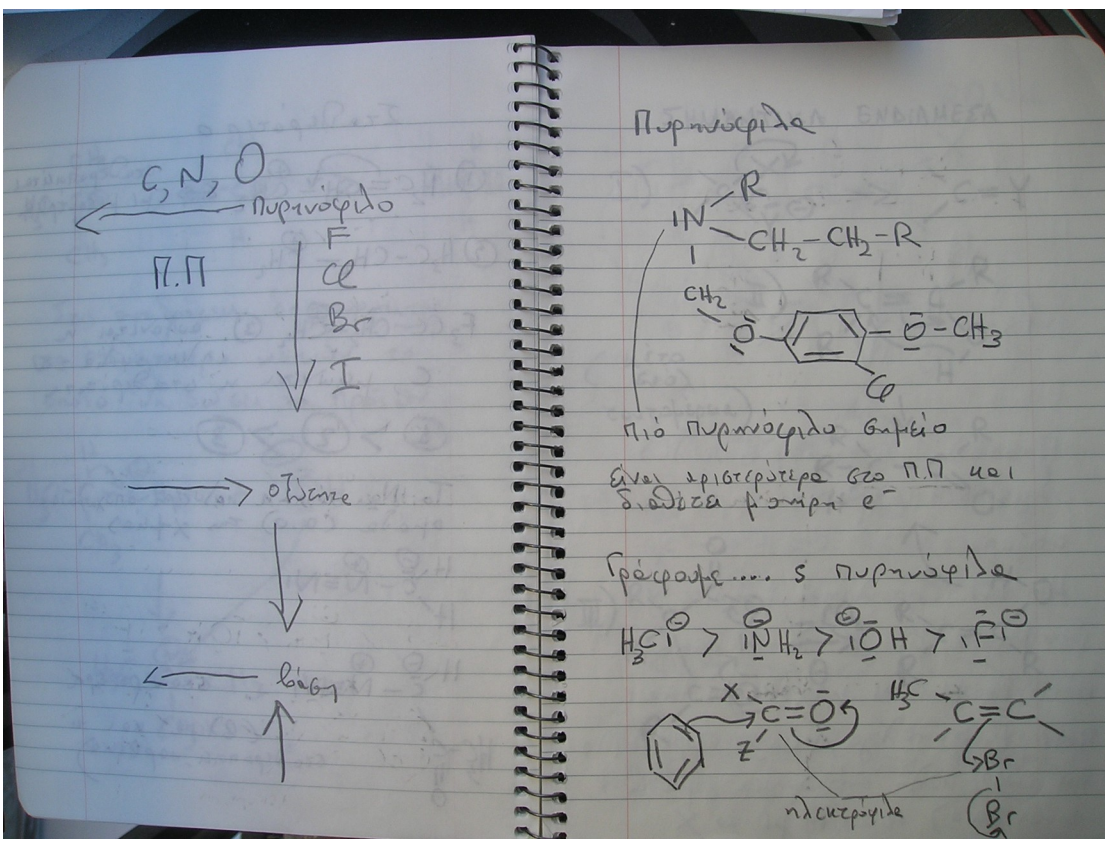 C, N, O
Πυρηνόφιλο
Π.Π
F
Cl
Br
I
οξύτητα
βάση
Πυρηνόφιλα
R
IN
CH2-CH2-R
CH2
O
O-CH3
Cl
πιό πυρηνόφιλο σημείο
είναι αριστερότερα στο Π.Π και
διαθέτει μονήρη e-
Γράφουμε.... 5 πυρηνόφιλα
H3C⊖ > NH2⊖ > ⊖OH > F⊖
X
C=O
Z
H3C
C=C
Br
Br
ηλεκτρόφιλα